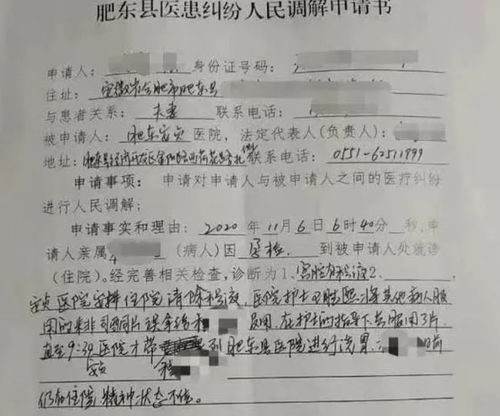 肥东县医患纠纷人民调解申请书
申请人: 身份证号码:
住址: 安徽省合肥市肥东县
与患者关系: 夫妻 联系电话:
被申请人: 肥东安贞医院, 法定代表人(负责人):
地址: 联系电话: 0551-62511999
申请事项: 申请对申请人与被申请人之间的医疗纠纷
进行人民调解;
申请事实和理由: 2020年11月6日6时40分 秒,申
请人亲属 (病人)因 到被申请人处就诊
(住院)。经完善相关检查,诊断为1、宫腔有积液2、
安贞医院安排住院清除积液,医院护士 将其他病人服
用的米非司酮片 服用,在护士的指导下 服用3片
直至9:39医院才带 到肥东县医院进行洗胃, 目前
仍在住院,精神状态不佳。